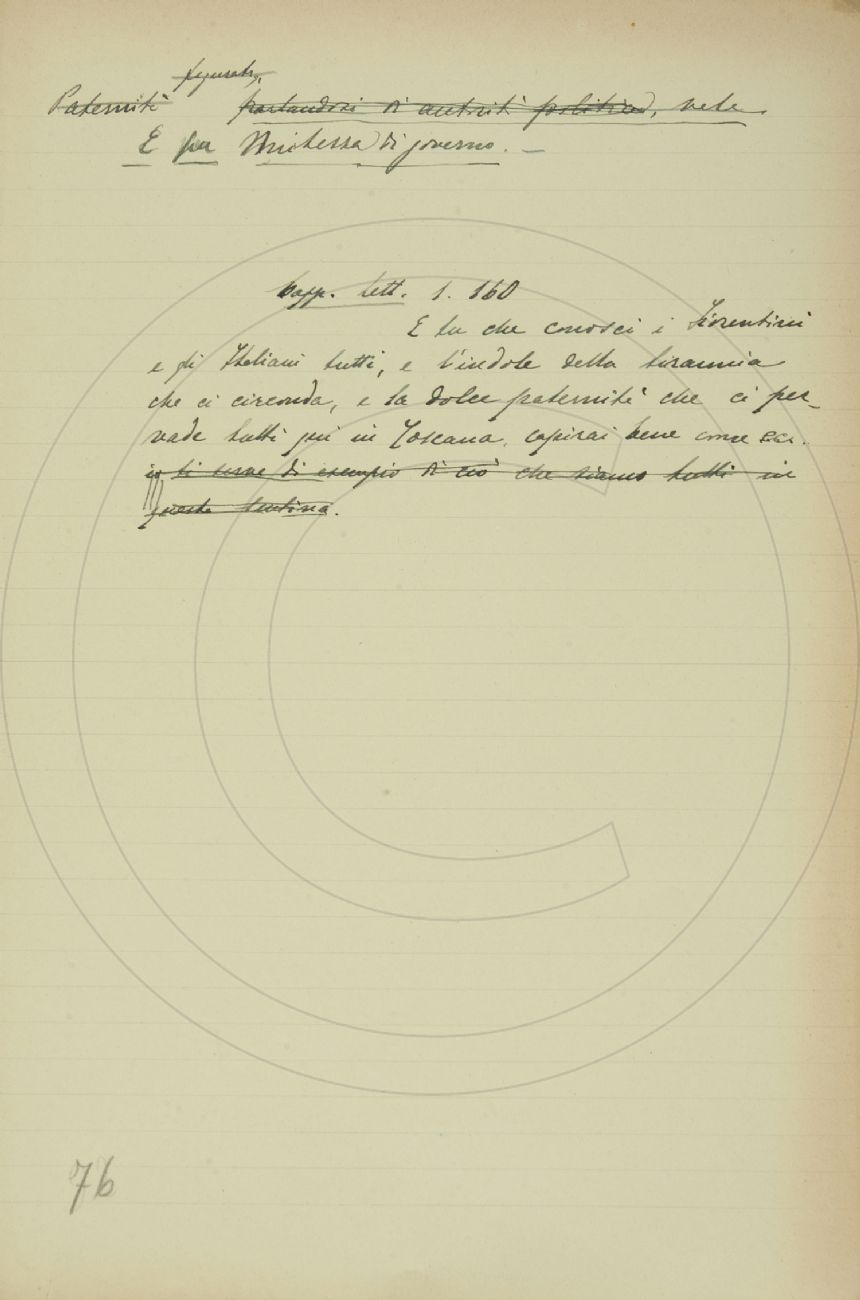 figurato,
Paternità parlandosi di autorità politica, vale
E per Mitezza di governo. —
Capp. Lett. 1. 160
E tu che conosci i Fiorentini
e gli Italiani tutti, e l'indole della tirannia
che ci circonda, e la dolce paternità che ci per-
vade tutti qui in Toscana, capirai bene come ecc.
io ti serva di esempio di ciò che siamo tutti in
questa sentina.
76